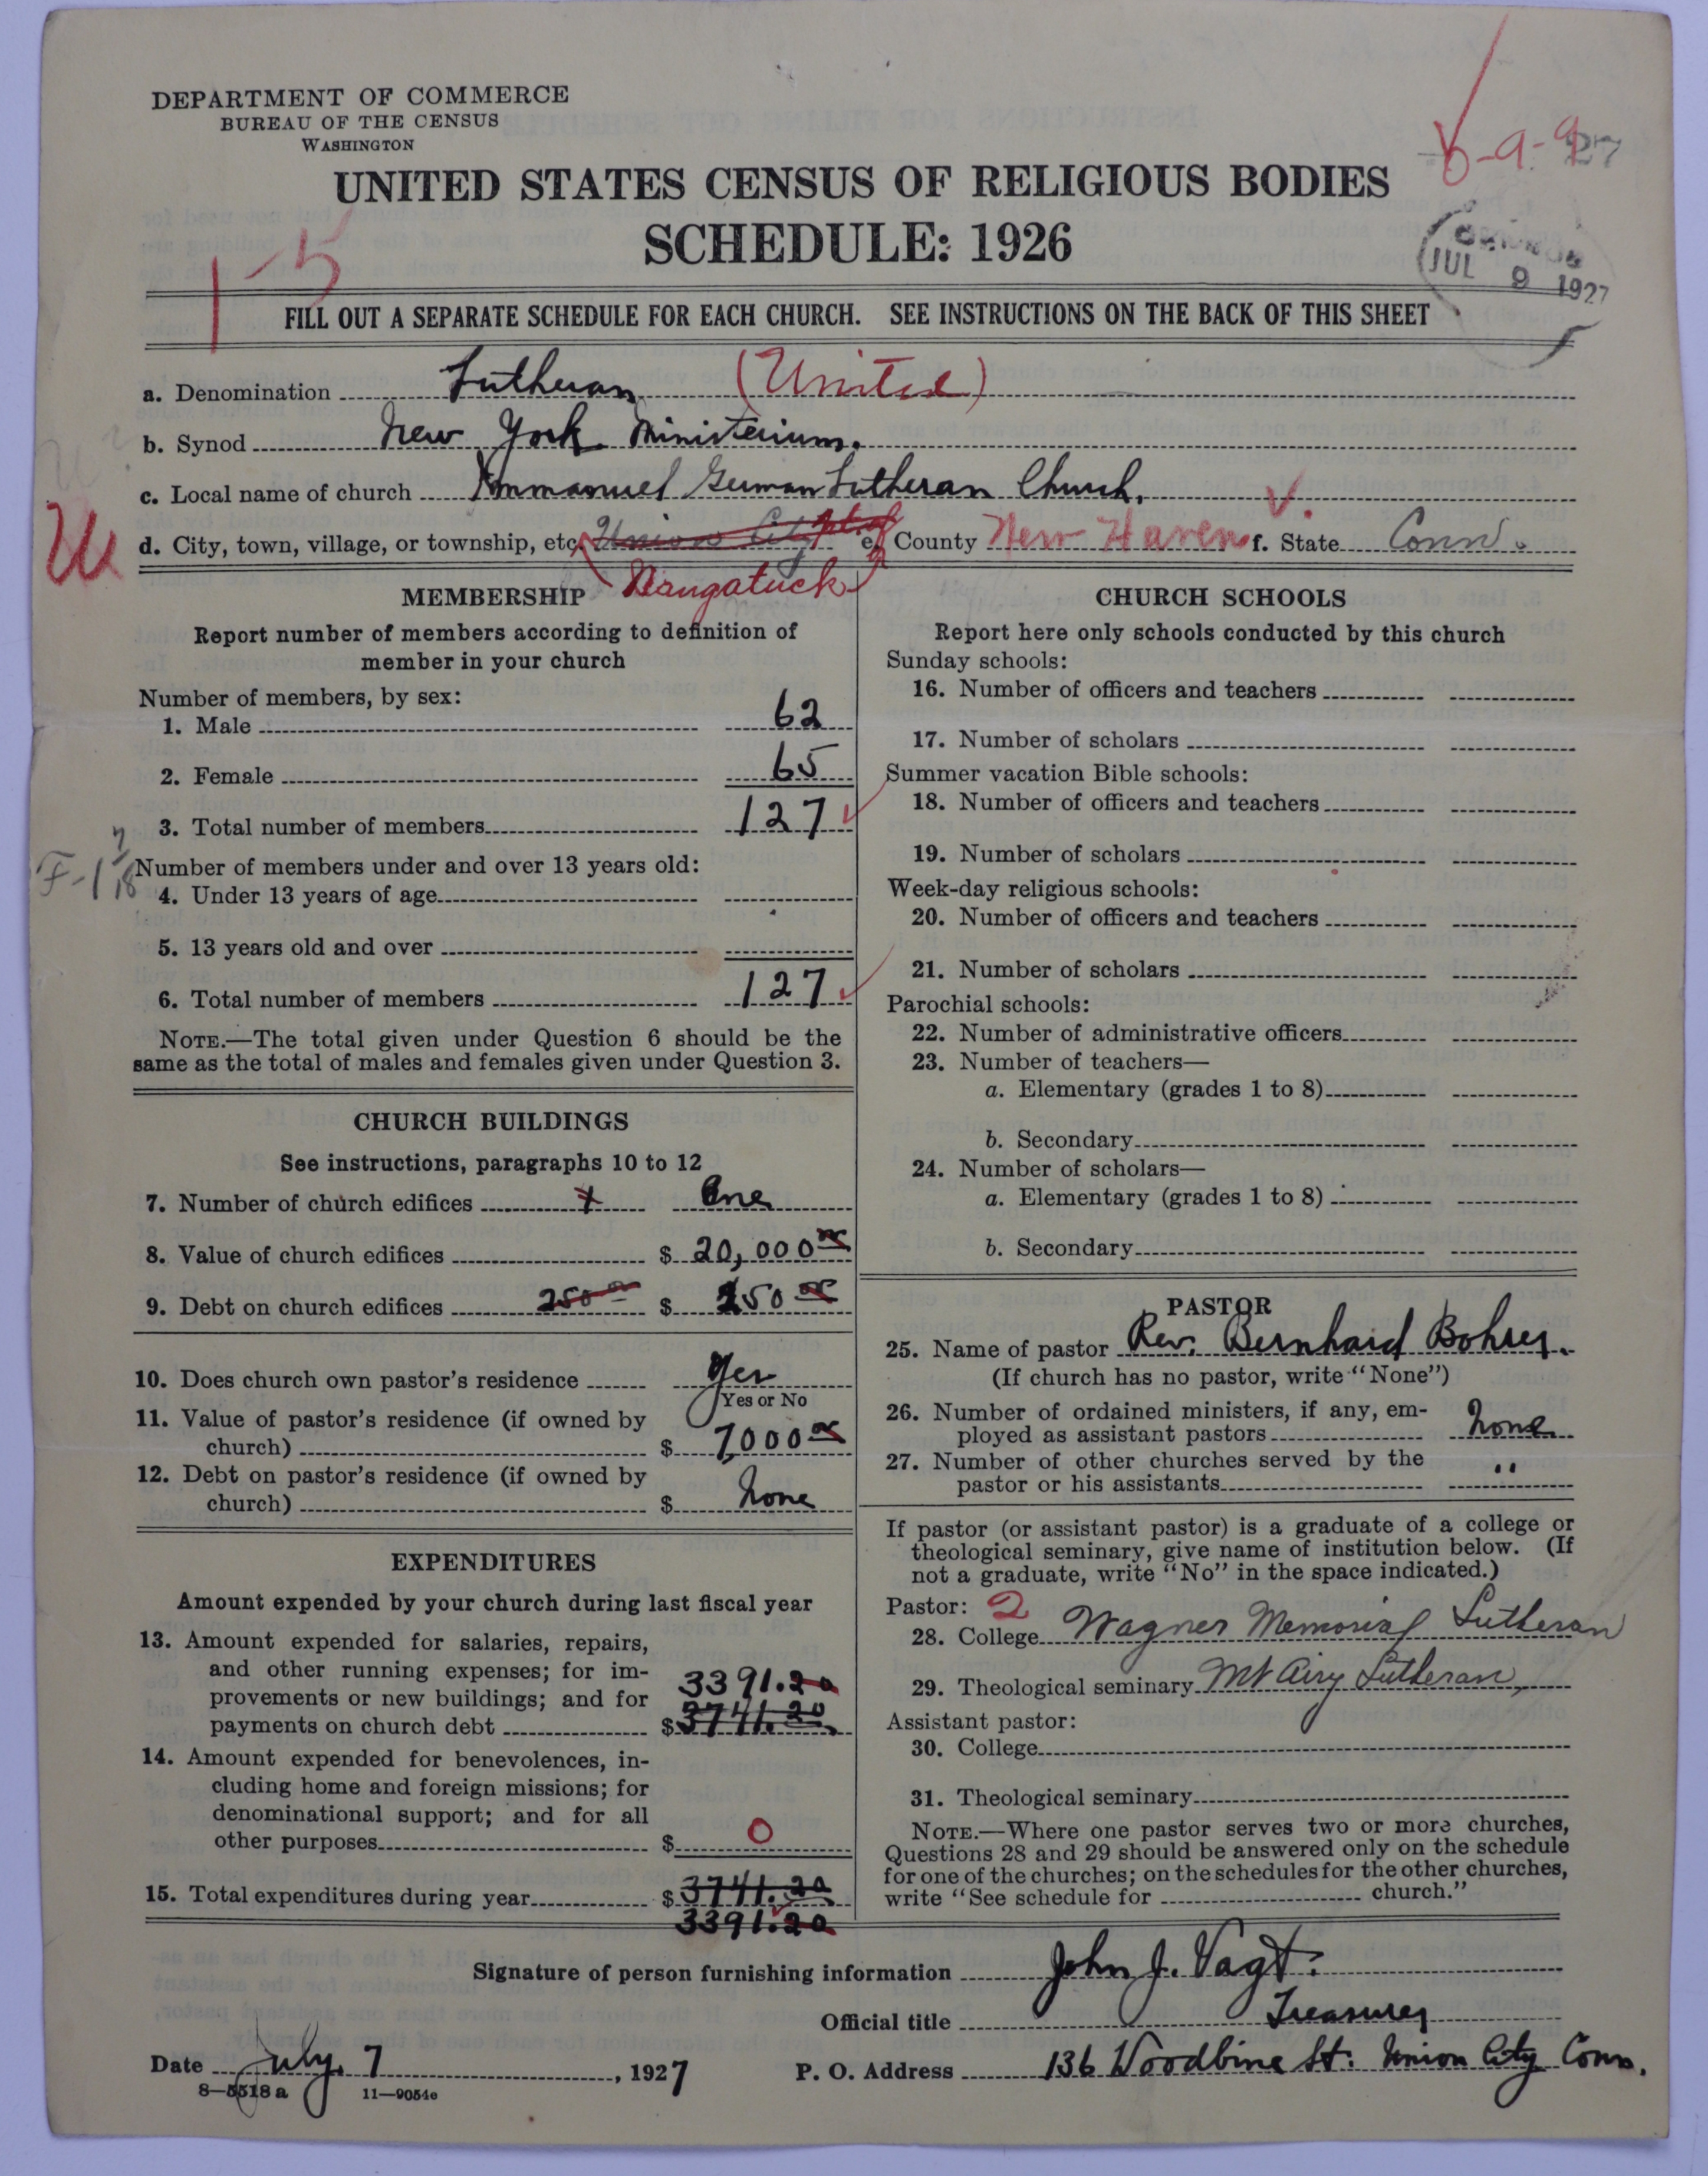 DEPARTMENT OF COMMERCE
BUREAU OF THE CENSUS
WASHINGTON
UNITED STATES CENSUS OF RELIGIOUS BODIES
SCHEDULE: 1926
JUL 9 1927
1-5
FILL OUT A SEPARATE SCHEDULE FOR EACH CHURCH. SEE INSTRUCTIONS ON THE BACK OF THIS SHEET
a. Denomination Lutheran (United)
b. Synod New York Ministerium.
c. Local name of church Immanuel German Lutheran Church.
d. City, town, village, or township, etc. Union City pt. of Naugatuck e. County New Haven f. State Conn.
MEMBERSHIP
Report number of members according to definition of
member in your church
Number of members, by sex:
1. Male 62
2. Female 65
3. Total number of members 127
Number of members under and over 13 years old:
4. Under 13 years of age
5. 13 years old and over
6. Total number of members 127
NOTE.—The total given under Question 6 should be the
same as the total of males and females given under Question 3.
CHURCH BUILDINGS
See instructions, paragraphs 10 to 12
7. Number of church edifices One
8. Value of church edifices $ 20,000 00
9. Debt on church edifices 250 00 $ 250 00
10. Does church own pastor's residence Yes
Yes or No
11. Value of pastor's residence (if owned by
church) $ 7,000 00
12. Debt on pastor's residence (if owned by
church) $ None
EXPENDITURES
Amount expended by your church during last fiscal year
13. Amount expended for salaries, repairs,
and other running expenses; for im-
provements or new buildings; and for 3391.20
payments on church debt $ 3741.20
14. Amount expended for benevolences, in-
cluding home and foreign missions; for
denominational support; and for all
other purposes $ 0
15. Total expenditures during year $ 3741.20
3391.20
CHURCH SCHOOLS
Report here only schools conducted by this church
Sunday schools:
16. Number of officers and teachers
17. Number of scholars
Summer vacation Bible schools:
18. Number of officers and teachers
19. Number of scholars
Week-day religious schools:
20. Number of officers and teachers
21. Number of scholars
Parochial schools:
22. Number of administrative officers
23. Number of teachers—
a. Elementary (grades 1 to 8)
b. Secondary
24. Number of scholars—
a. Elementary (grades 1 to 8)
b. Secondary
PASTOR
25. Name of pastor Rev. Bernhard Bohrer.
(If church has no pastor, write "None")
26. Number of ordained ministers, if any, em-
ployed as assistant pastors None
27. Number of other churches served by the
pastor or his assistants "
If pastor (or assistant pastor) is a graduate of a college or
theological seminary, give name of institution below. (If
not a graduate, write "No" in the space indicated.)
Pastor: 2
28. College Wagner Memorial Lutheran
29. Theological seminary Mt Airy Lutheran,
Assistant pastor:
30. College
31. Theological seminary
NOTE.—Where one pastor serves two or more churches,
Questions 28 and 29 should be answered only on the schedule
for one of the churches; on the schedules for the other churches,
write "See schedule for church."
Signature of person furnishing information John J. Vagt.
Official title Treasurer
Date July 7, 1927 P. O. Address 136 Woodbine St. Union City Conn.
8—5518 a 11—9054e